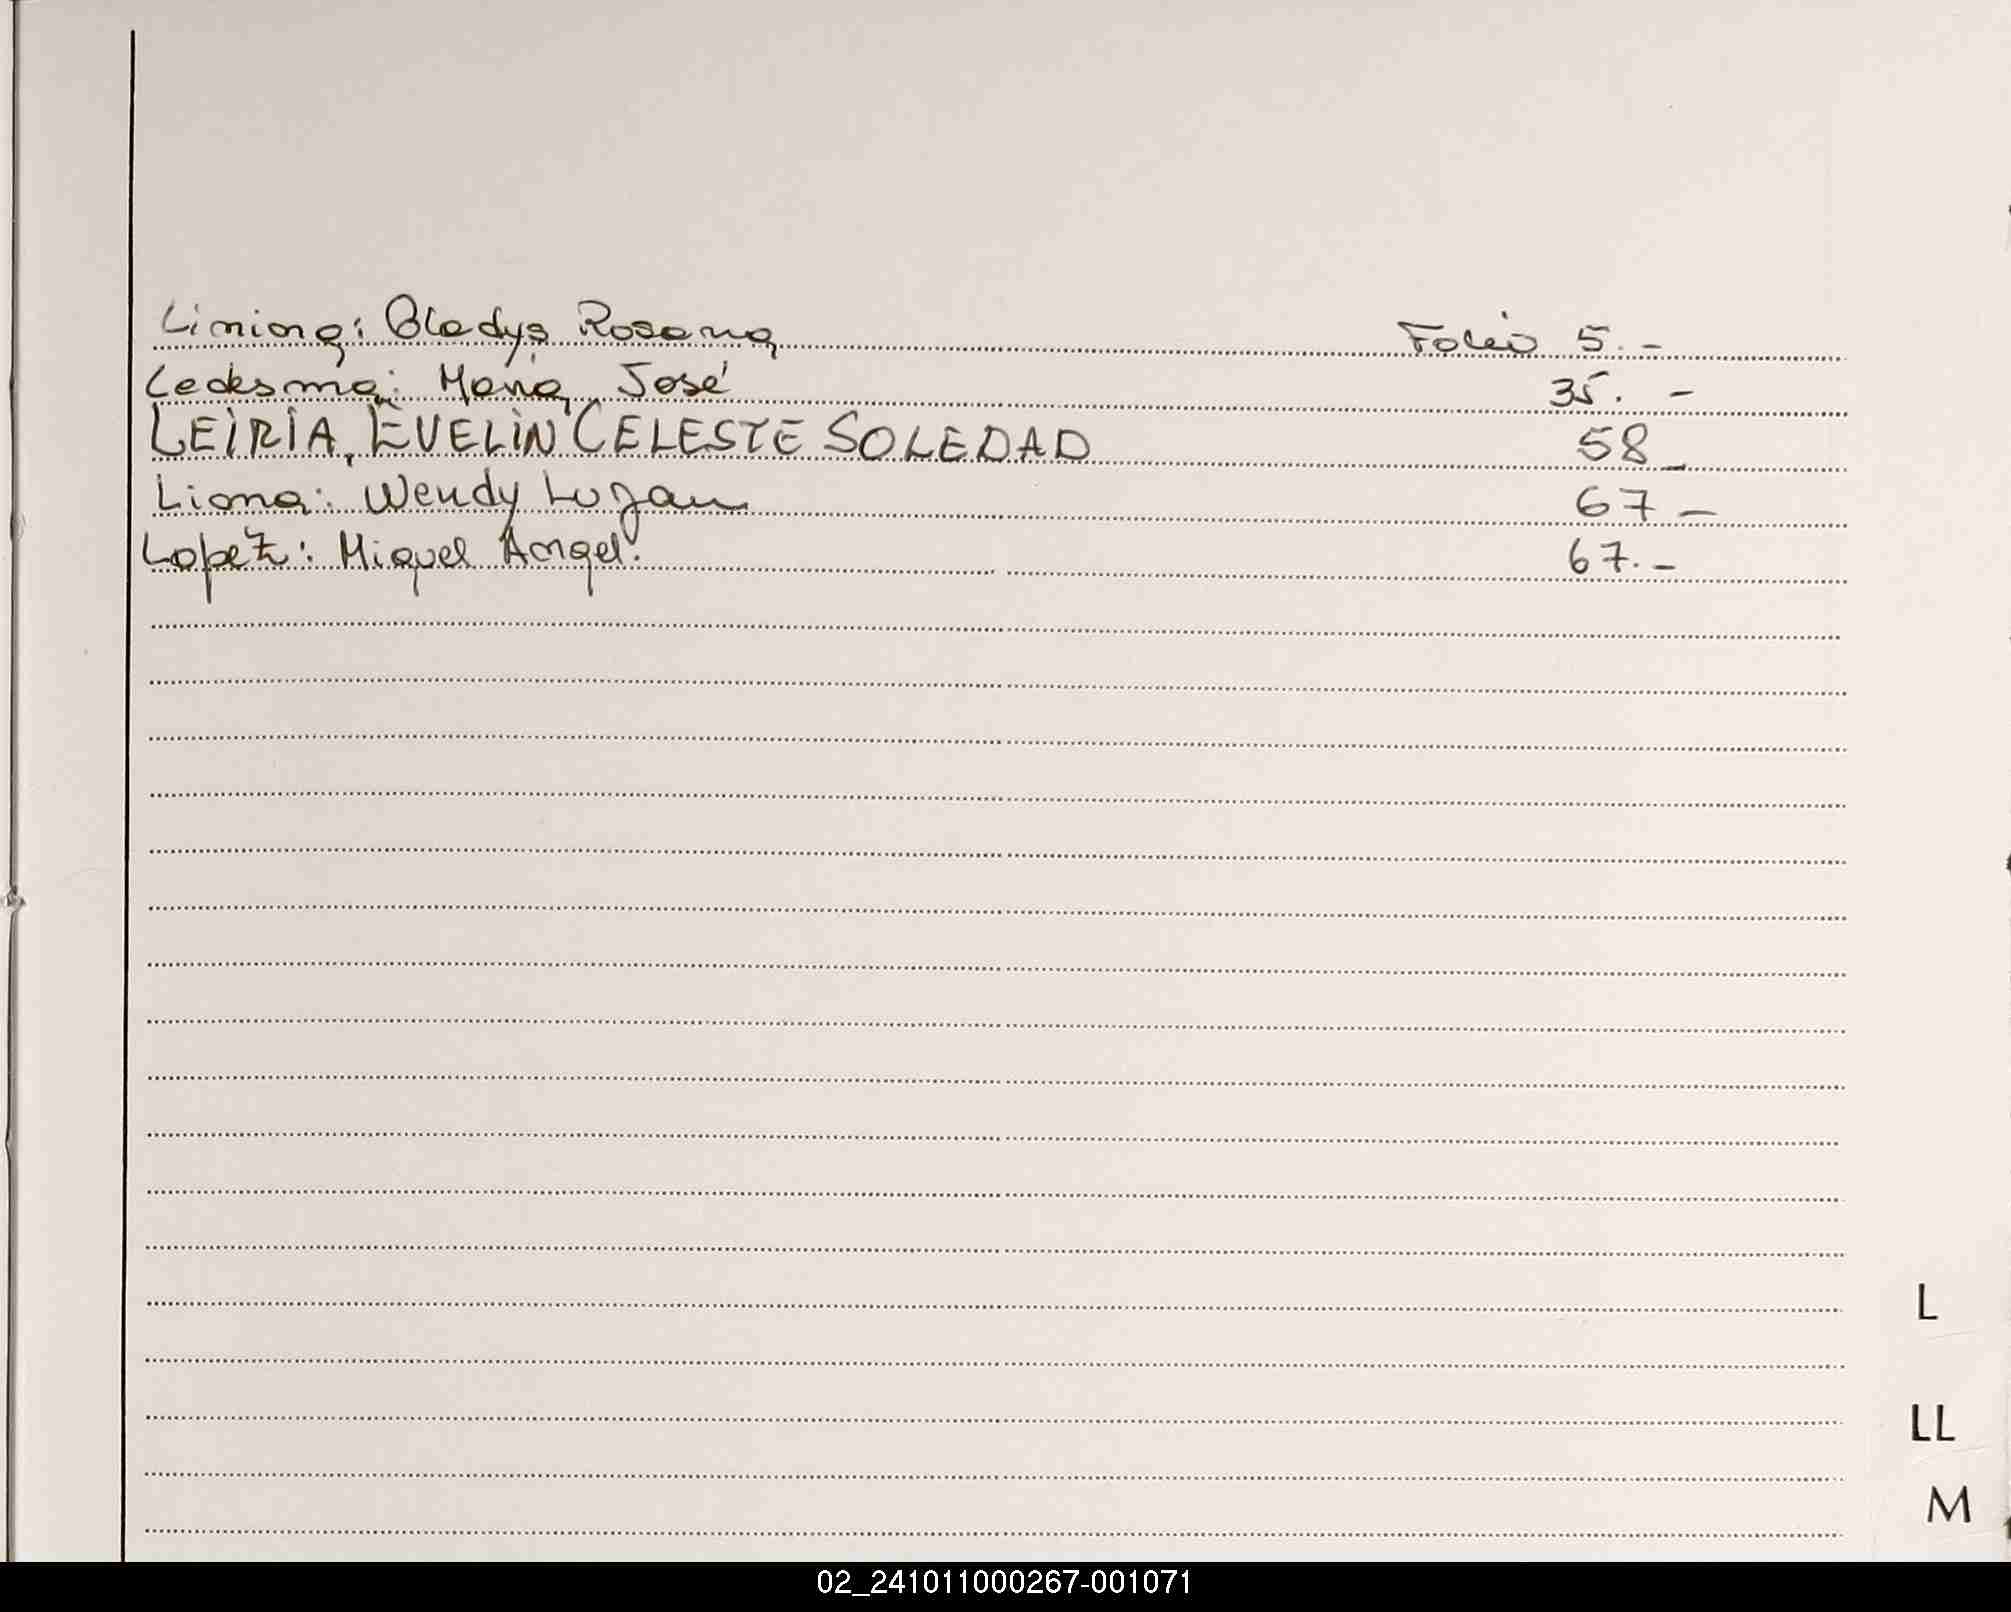 Liniona: Gladys Rosana Folio 5.-
Ledesma: Maria José 35. -
LEIRIA, EVELIN CELESTE SOLEDAD 58_
Liona: Wendy Lujan 67 -
Lopez: Miguel Angel. 67.-
L
LL
M
02_241011000267-001071